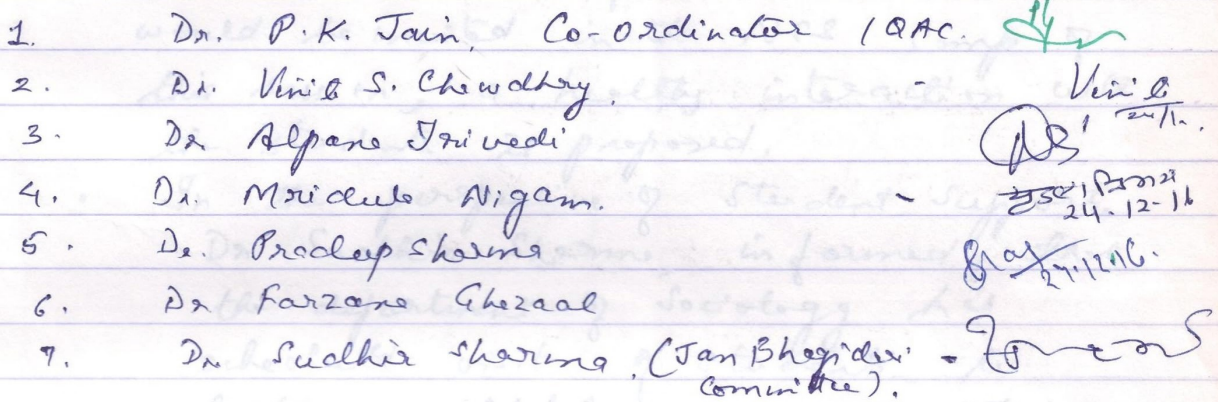 1. Dr. P.K. Jain, Co-ordinator IQAC.
2. Dr. Vinit S. Chowdhry. - Vinit 24/12.
3. Dr Alpana Trivedi
4. Dr. Mridula Nigam. - मृदुला निगम 24-12-16
5. Dr. Pradeep Sharma 24.12.16.
6. Dr Farzana Ghazaal
7. Dr Sudhir Sharma, (Jan Bhagidari -
Committee).